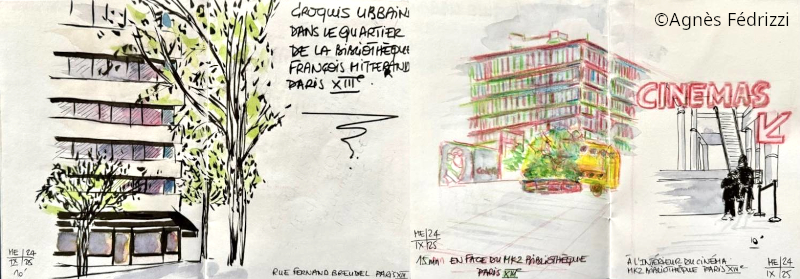 ©Agnès Fédrizzi
CROQUIS URBAIN
DANS LE QUARTIER
DE LA BIBLIOTHÈQUE
FRANÇOIS MITTERAND
PARIS XIIIe.
ME/24
IX/25
10'
RUE FERNAND BREUDEL PARIS XIII
ME/24
IX/25
15 MN EN FACE DU MK2 BIBLIOTHÈQUE
PARIS XIIIe
CINEMAS
10'
À L'INTÉRIEUR DU CINÉMA
MK2 BIBLIOTHÈQUE PARIS XIIIe
ME/24
IX/25